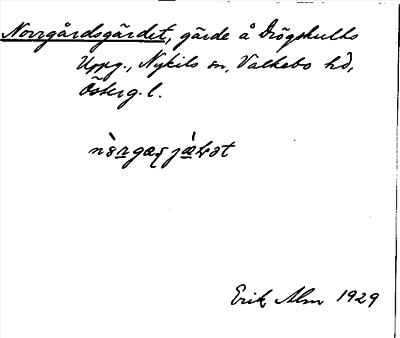 Norrgårdsgärdet, gärde å Drögshults
Uppg., Nykils sn, Valkebo hd,
Österg. l.
Erik Alm 1929